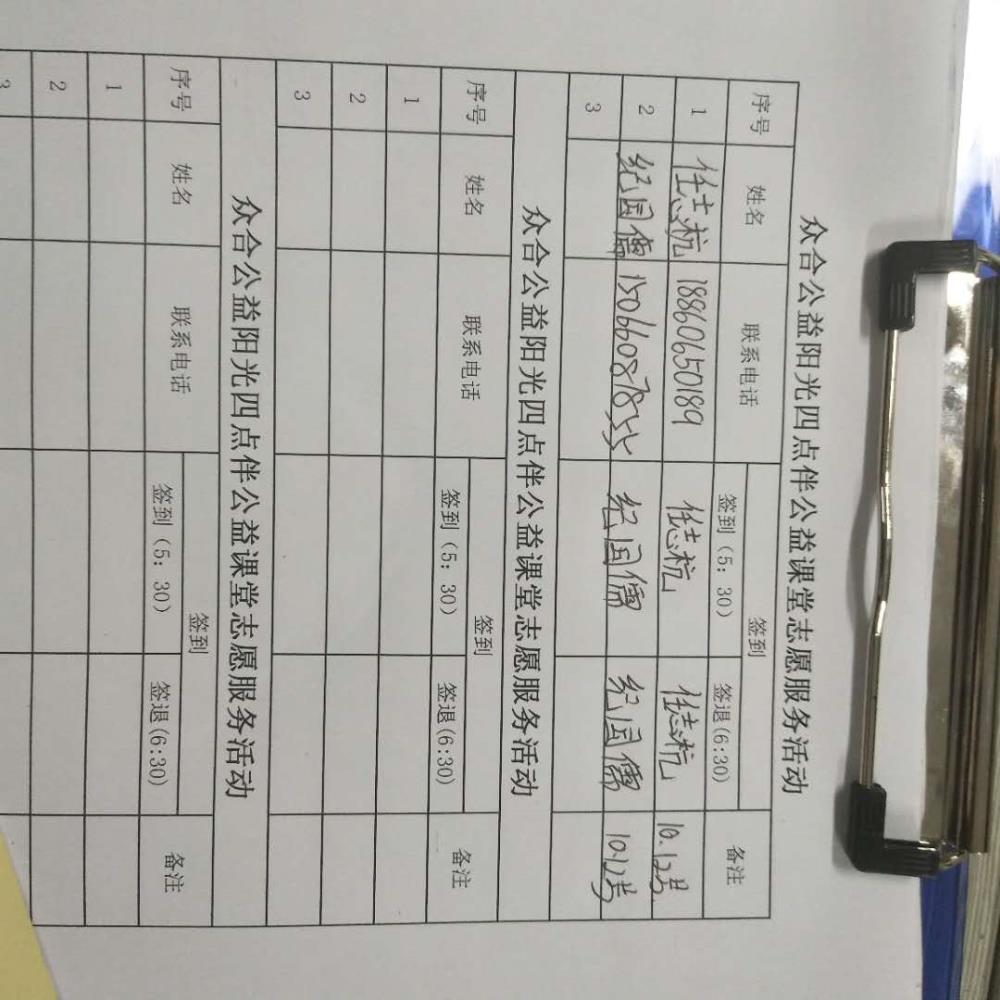 众合公益阳光四点伴公益课堂志愿服务活动
序号 姓名 联系电话 签到 备注
签到（5：30） 签退(6:30)
1 任志杭 18860650189 任志杭 任志杭 10.12号
2 纪国儒 15066087855 纪国儒 纪国儒 10.12号
3
众合公益阳光四点伴公益课堂志愿服务活动
序号 姓名 联系电话 签到 备注
签到（5：30） 签退(6:30)
1
2
3
众合公益阳光四点伴公益课堂志愿服务活动
序号 姓名 联系电话 签到 备注
签到（5：30） 签退(6:30)
1
2
3